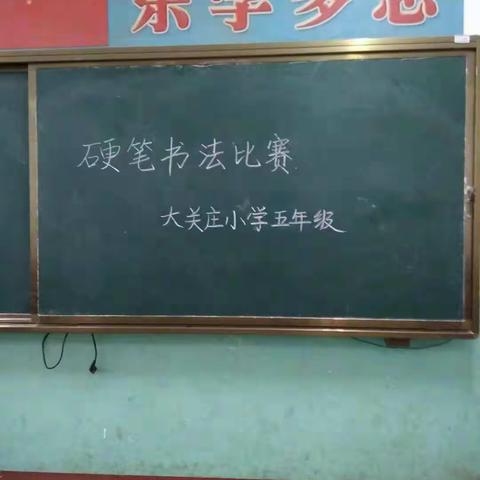 乐学多思
硬笔书法比赛
大关庄小学五年级